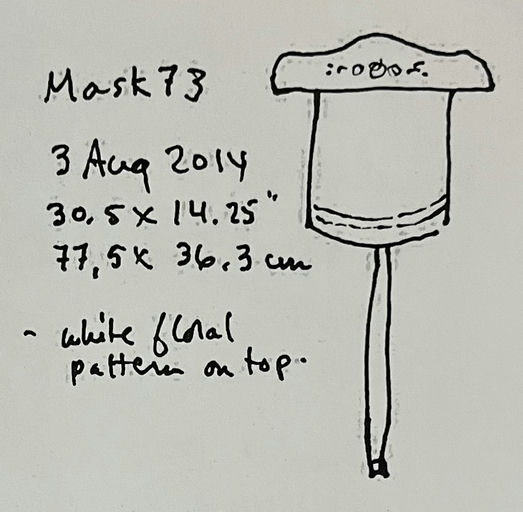 Mask 73
3 Aug 2014
30.5 x 14.25"
77,5 x 36.3 cm
- white floral
pattern on top.